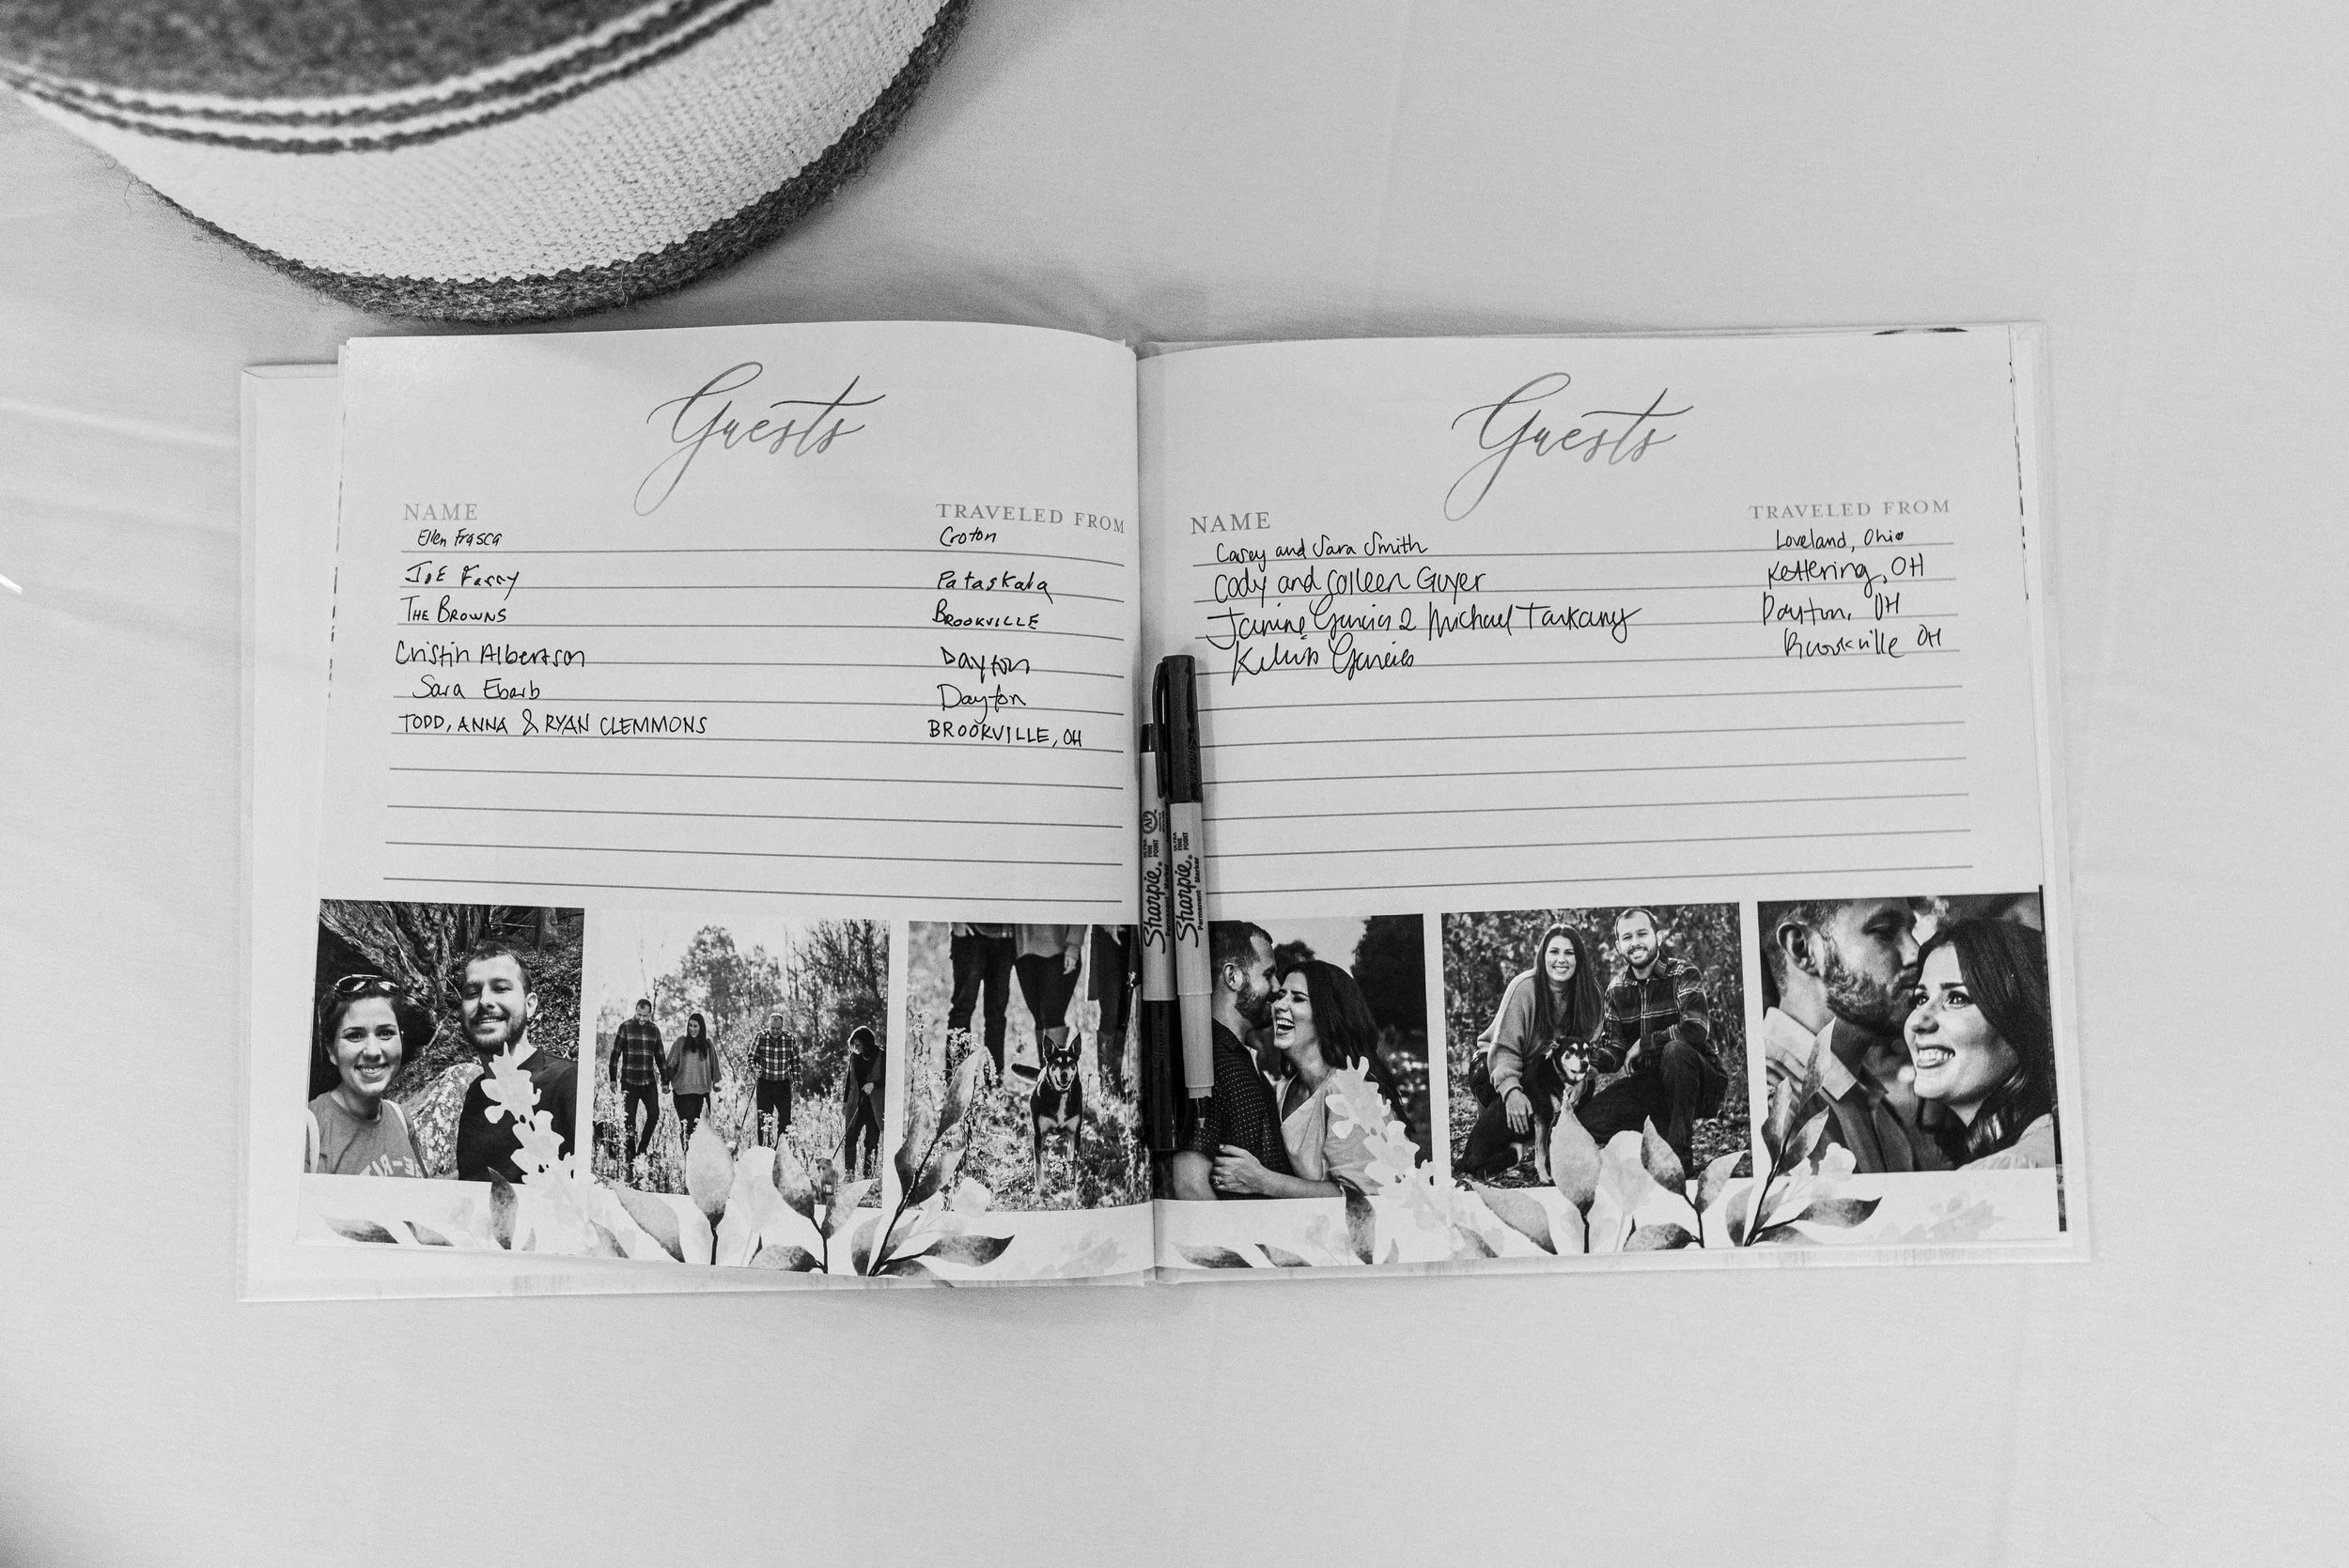 Guests
NAME TRAVELED FROM
Ellen Frasca Croton
JOE Pataskala
THE BROWNS BROOKVILLE
Cristin Albertson Dayton
Sara Ebarb Dayton
TODD, ANNA & RYAN CLEMMONS BROOKVILLE, OH
Guests
NAME TRAVELED FROM
Casey and Sara Smith Loveland, Ohio
Cody and Colleen Guyer Kettering, OH
Janine Garcia & Michael Tarkany Dayton, OH
Brookville OH
Sharpie.
Permanent Marker
ULTRA FINE POINT
AP
Sharpie.
Permanent Marker
ULTRA FINE POINT